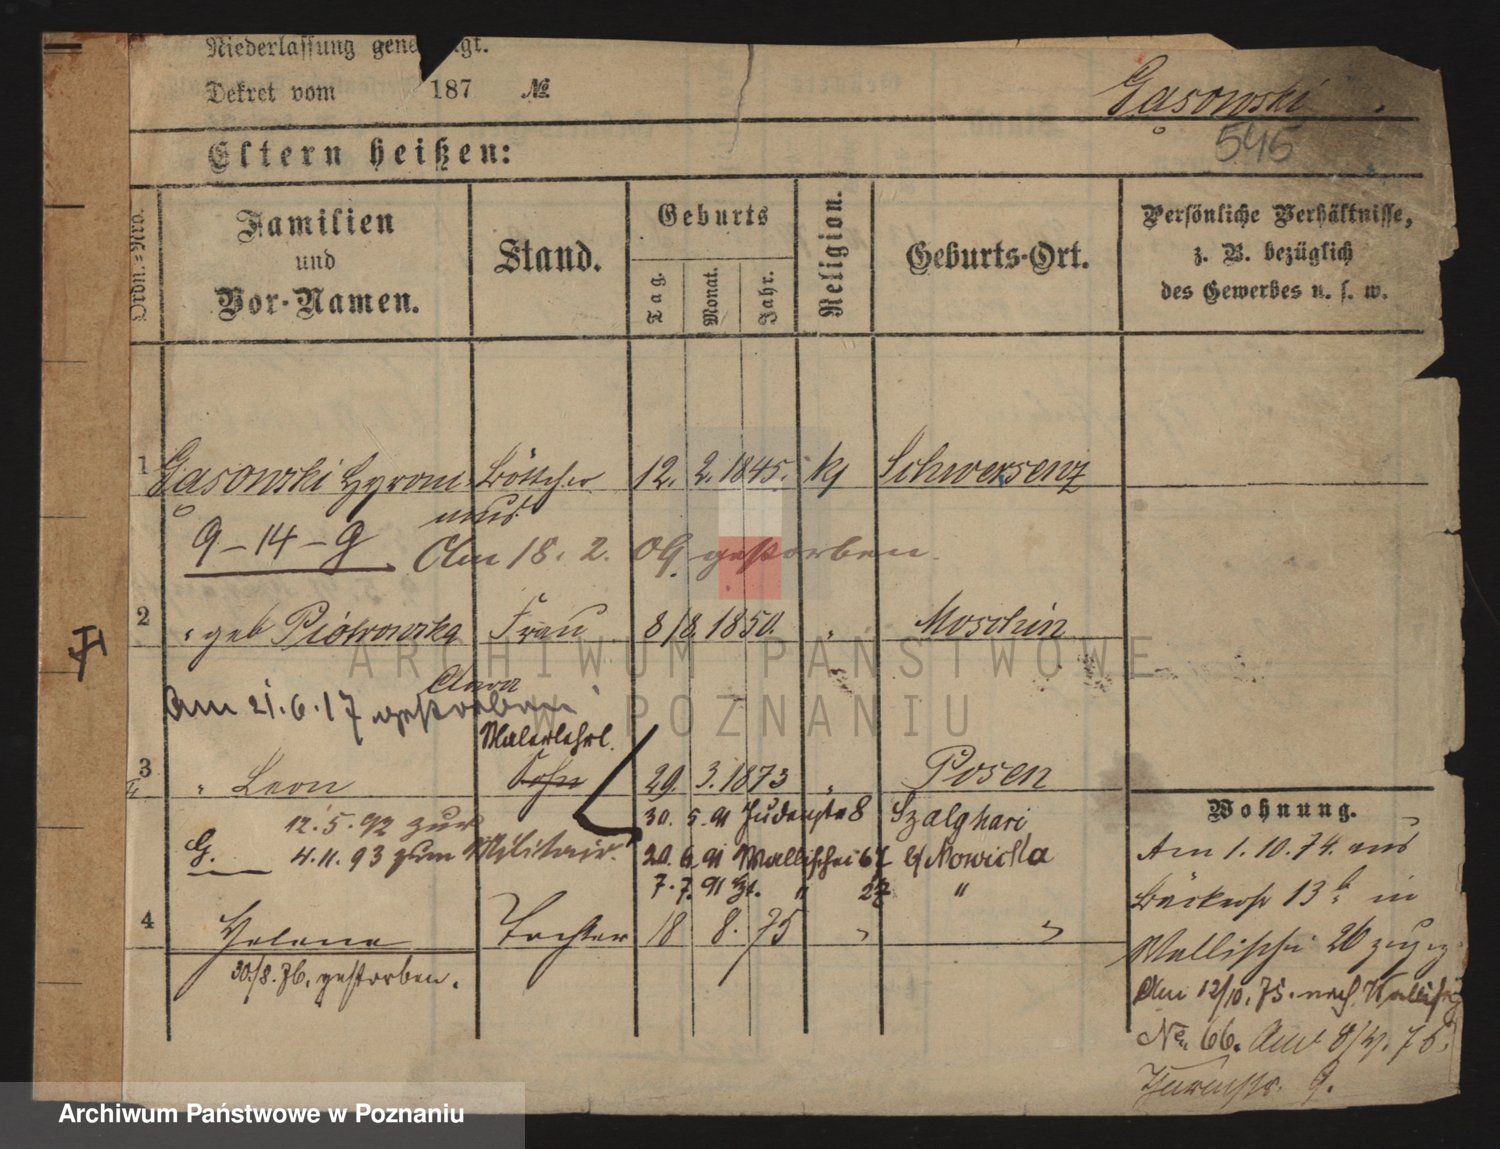 Niederlassung gene gt.
Dekret vom 187 №
Gąsowski
545
Eltern heißen:
Ordn.-Nro.
Familien und Vor-Namen.
Stand.
Geburts
Tag. Monat. Jahr.
Religion.
Geburts-Ort.
Persönliche Verhältnisse,
z. B. bezüglich
des Gewerbes u. s. w.
1 Gąsowski Hyroni Böttcher 12. 2. 1845. kƒ Schwersenz
mus
9-14-g Am 18. 2. 09. gestorben.
2 " geb Piotrowska Frau 8/8. 1850. " Moschin
Clara
Am 21.6.17 gestorben
Malerlehrl.
3 " Leon Sohn 29. 3. 1873 " Posen
12.5.92 zur
30. 5. 91 Judenstr 8 Szalghari
G. 4.11.93 zum Militair.
20. 6. 91 Wallischei 67 b/ Nowicka
7. 7. 91 " 27 "
4 Helene Tochter 18 8. 75 " "
30./8. 76. gestorben.
Wohnung.
Am 1.10.74. aus
Bäckerstr 13b in
Wallischei 26
Am 12/10. 75. nach Wallischei
No. 66. Am 8/ 76.
Thurmstr. 9.
ARCHIWUM PAŃSTWOWE
W POZNANIU
Archiwum Państwowe w Poznaniu